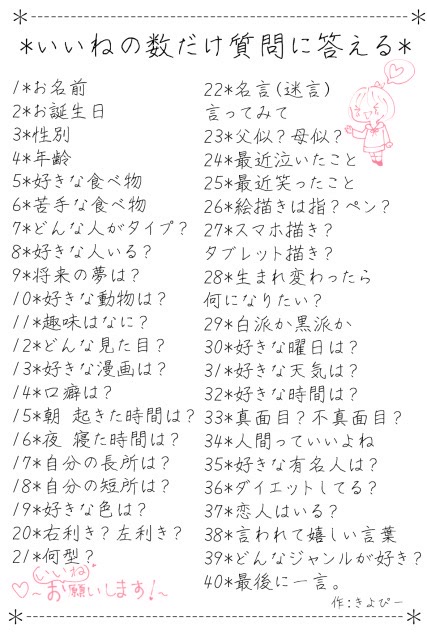 *いいねの数だけ質問に答える*
1*お名前
2*お誕生日
3*性別
4*年齢
5*好きな食べ物
6*苦手な食べ物
7*どんな人がタイプ?
8*好きな人いる?
9*将来の夢は?
10*好きな動物は?
11*趣味はなに?
12*どんな見た目?
13*好きな漫画は?
14*口癖は?
15*朝 起きた時間は?
16*夜 寝た時間は?
17*自分の長所は?
18*自分の短所は?
19*好きな色は?
20*右利き?左利き?
21*何型?
22*名言(迷言)
言ってみて
23*父似?母似?
24*最近泣いたこと
25*最近笑ったこと
26*絵描きは指?ペン?
27*スマホ描き?
タブレット描き?
28*生まれ変わったら
何になりたい?
29*白派か黒派か
30*好きな曜日は?
31*好きな天気は?
32*好きな時間は?
33*真面目?不真面目?
34*人間っていいよね
35*好きな有名人は?
36*ダイエットしてる?
37*恋人はいる?
38*言われて嬉しい言葉
39*どんなジャンルが好き?
40*最後に一言。
いいね
♡~お願いします!~
作:きよぴー